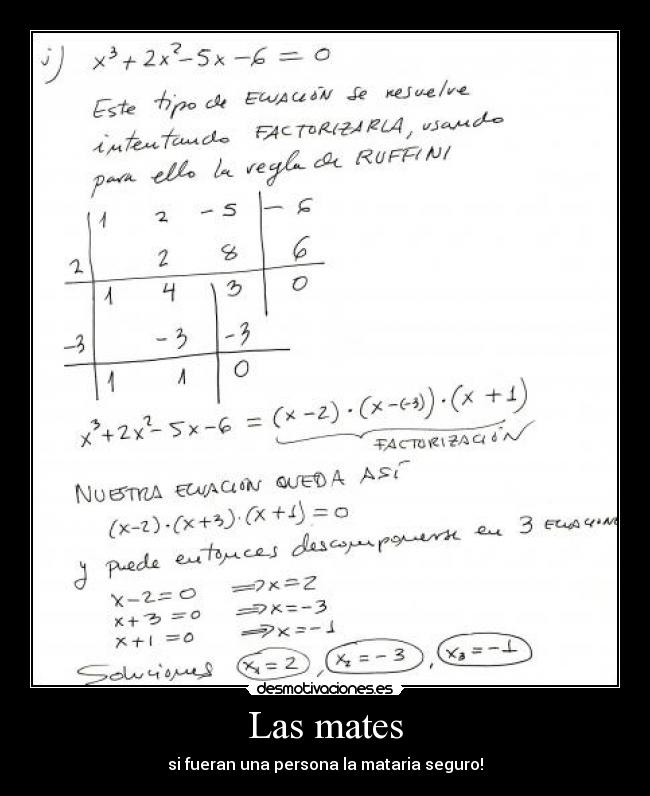 j) x³ + 2x² - 5x - 6 = 0
Este tipo de ECUACIÓN se resuelve
intentando FACTORIZARLA, usando
para ello la regla de RUFFINI
1 2 -5 -6
2 2 8 6
1 4 3 0
-3 -3 -3
1 1 0
x³ + 2x² - 5x - 6 = (x - 2) · (x - (-3)) · (x + 1)
FACTORIZACIÓN
NUESTRA ECUACIÓN QUEDA ASÍ
(x-2) · (x+3) · (x+1) = 0
y puede entonces descomponerse en 3 ECUACIONE
x - 2 = 0 ⇒ x = 2
x + 3 = 0 ⇒ x = -3
x + 1 = 0 ⇒ x = -1
Soluciones x₁ = 2 , x₂ = -3 , x₃ = -1
desmotivaciones.es
Las mates
si fueran una persona la mataria seguro!